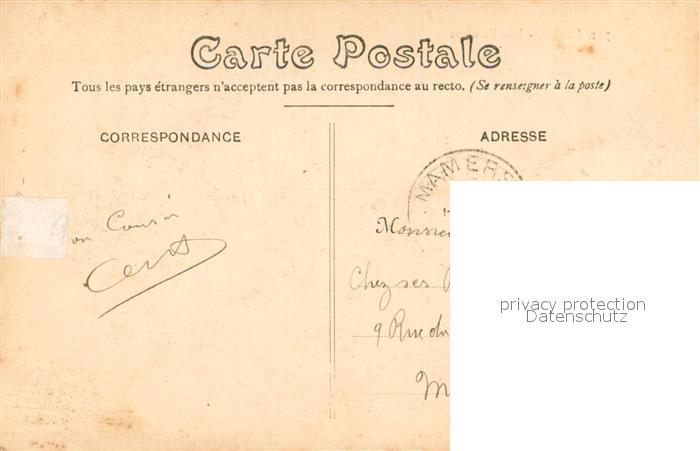 Carte Postale
Tous les pays étrangers n'acceptent pas la correspondance au recto. (Se renseigner à la poste)
CORRESPONDANCE
ADRESSE
MAMERS
on Cousin
Monsie
Chez ses
9 Rue du
M
privacy protection
Datenschutz